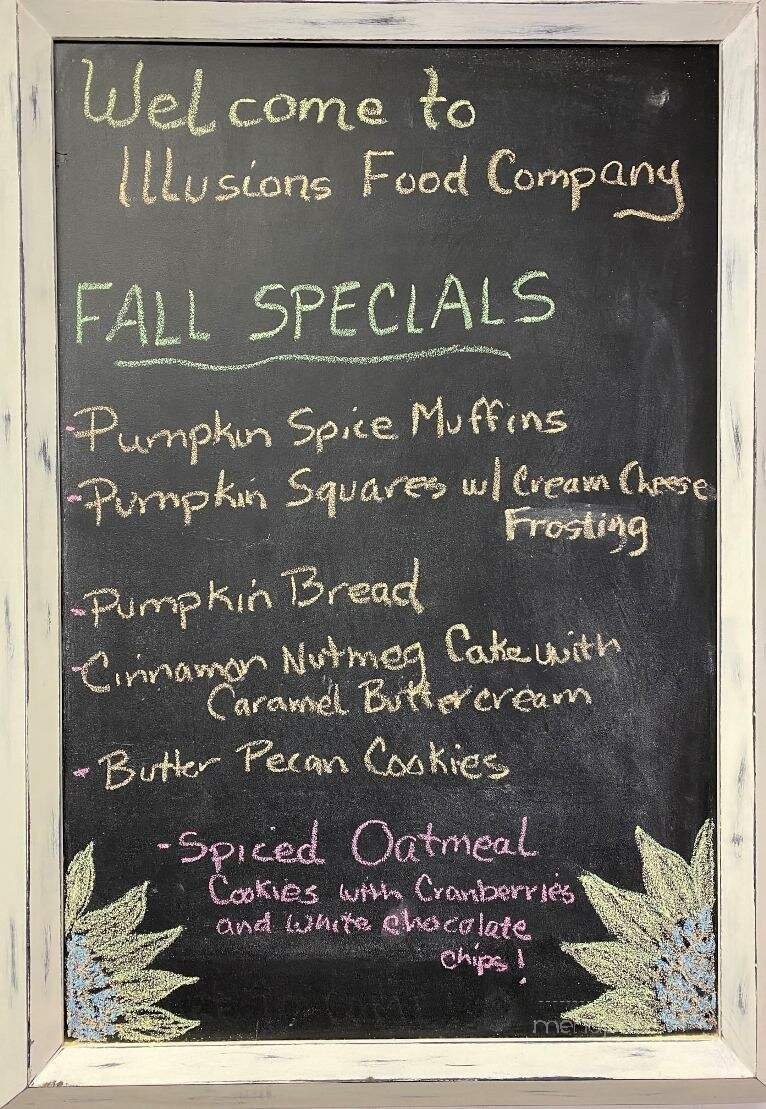 Welcome to
Illusions Food Company
FALL SPECIALS
- Pumpkin Spice Muffins
- Pumpkin Squares w/ Cream Cheese
Frosting
- Pumpkin Bread
- Cinnamon Nutmeg Cake with
Caramel Buttercream
- Butter Pecan Cookies
- Spiced Oatmeal
Cookies with Cranberries
and white chocolate
chips!